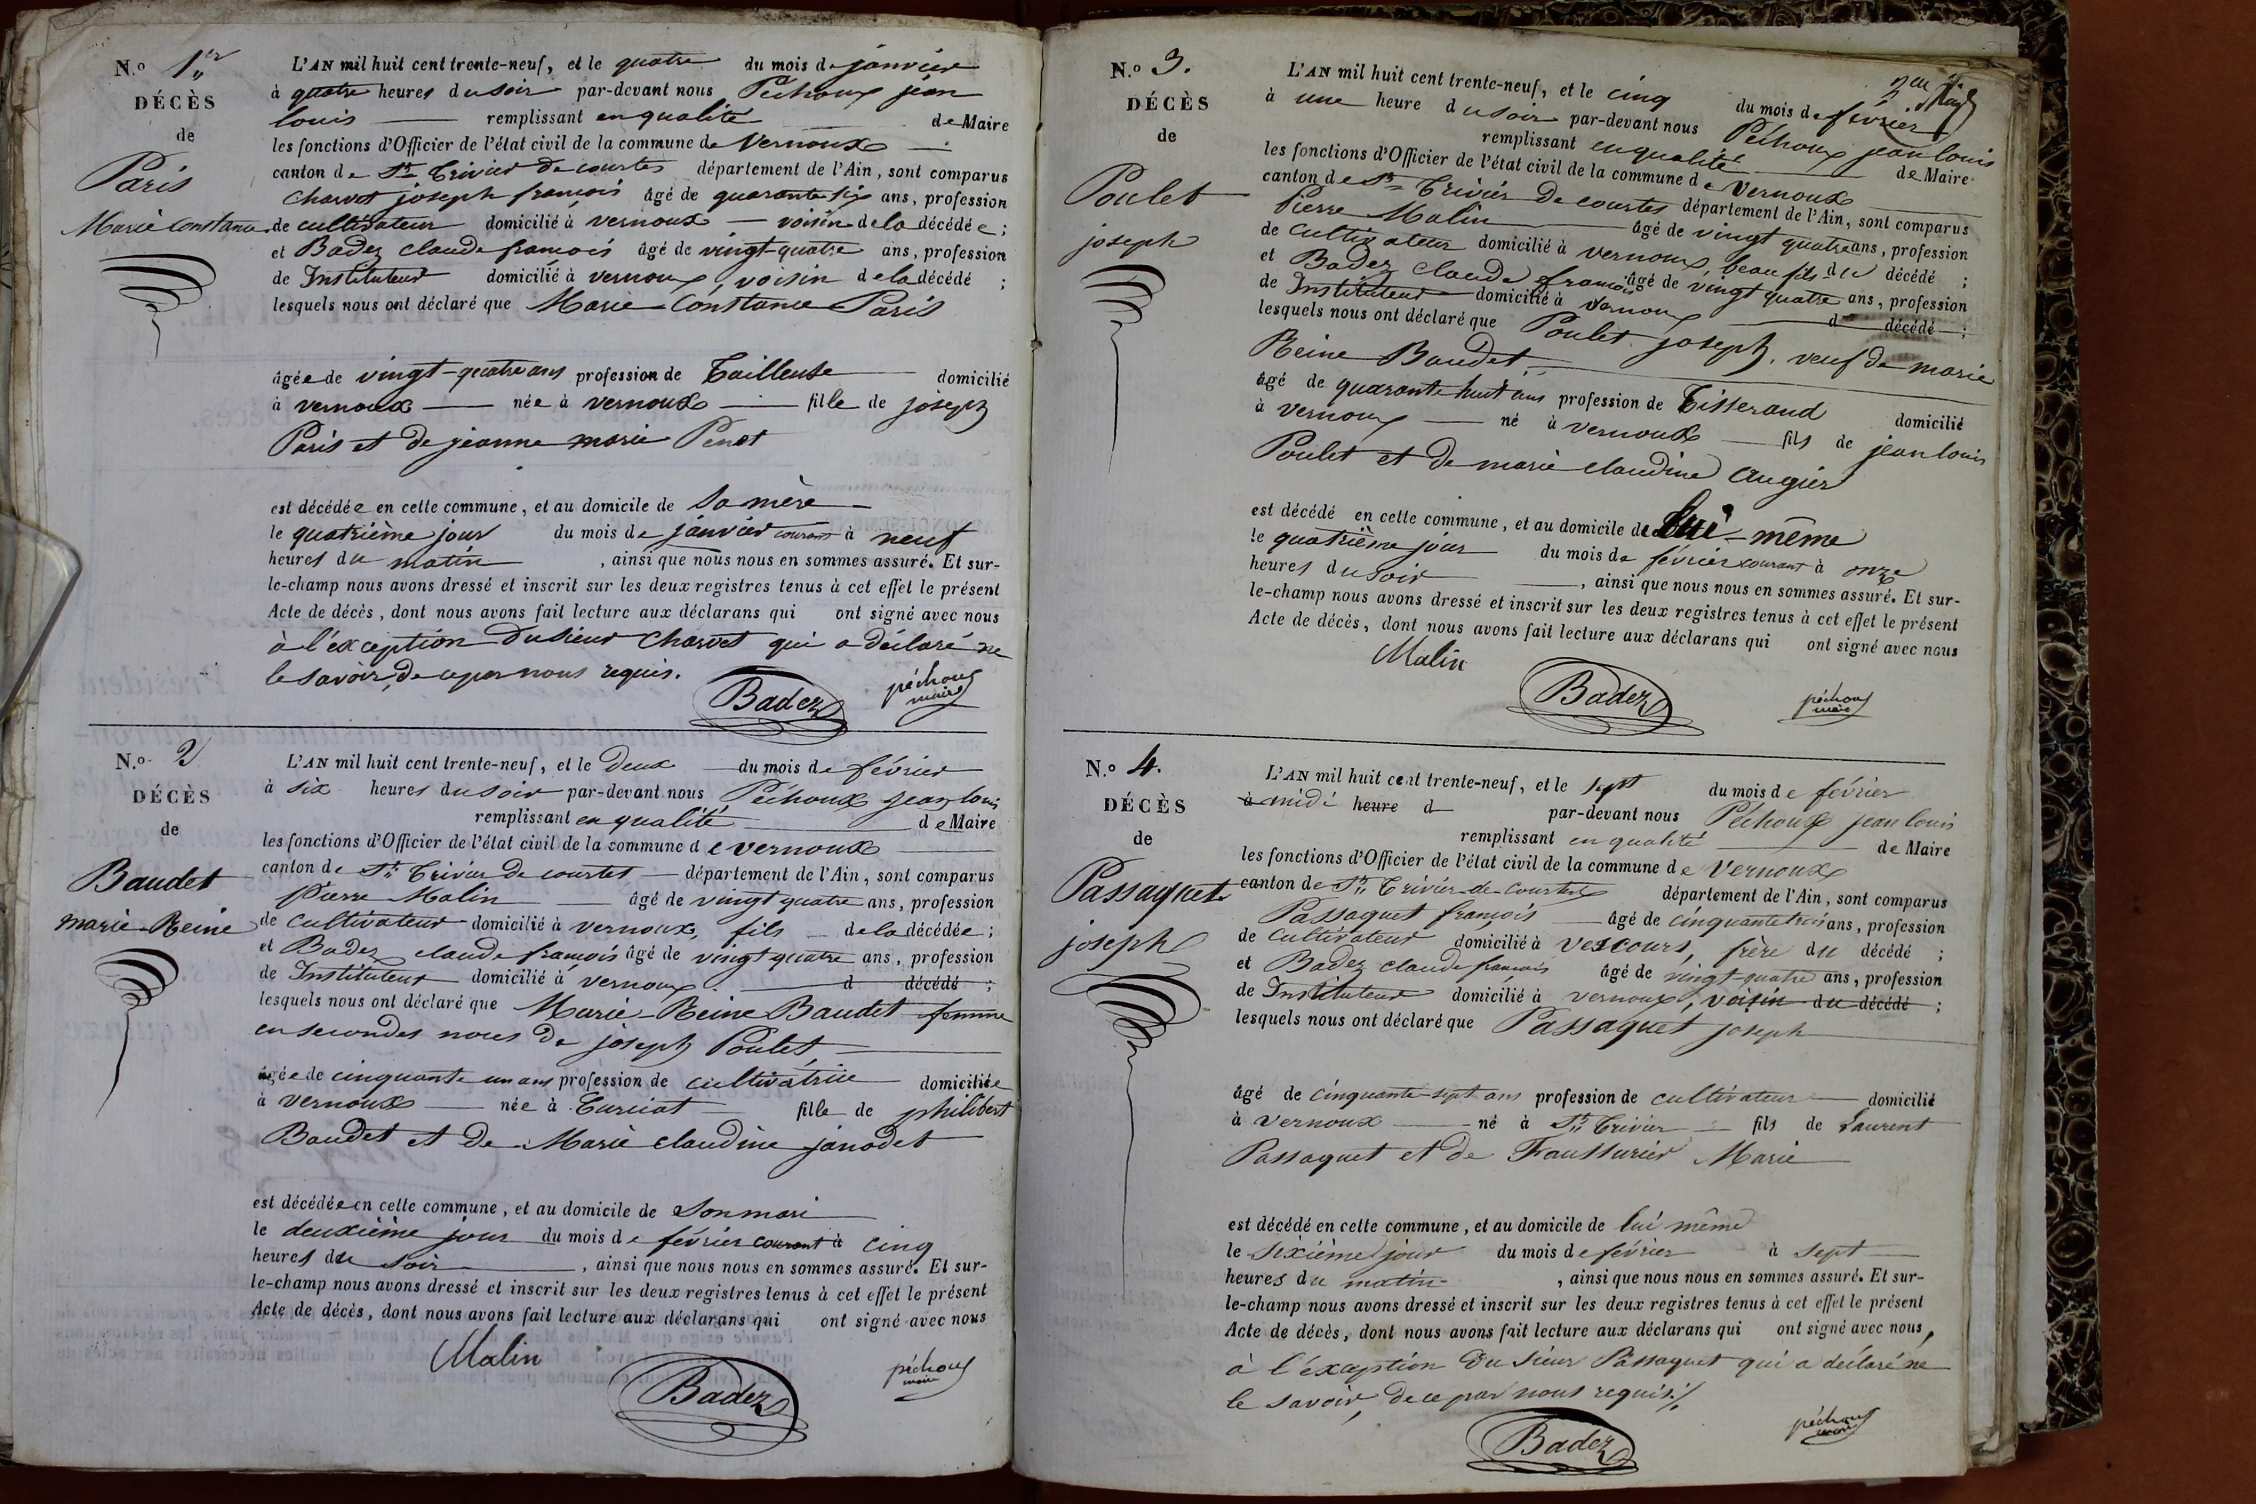 N.º 1er
DÉCÈS
de
Paris
Marie Constance
L'AN mil huit cent trente-neuf, et le quatre du mois de janvier
à quatre heures du soir par-devant nous Péchoux jean
louis remplissant en qualité de Maire
les fonctions d'Officier de l'état civil de la commune de Vernoux
canton de St Trivier de courtes département de l'Ain, sont comparus
Charvet joseph françois âgé de quarante six ans, profession
de cultivateur domicilié à vernoux voisin de la décédée ;
et Badez claude françois âgé de vingt-quatre ans, profession
de Instituteur domicilié à vernoux, voisin de la décédé ;
lesquels nous ont déclaré que Marie Constance Paris
âgée de vingt-quatre ans profession de Tailleuse domicilié
à vernoux née à vernoux fille de joseph
Paris et de jeanne marie Penot
est décédée en cette commune, et au domicile de sa mère
le quatrième jour du mois de janvier courant à neuf
heures du matin , ainsi que nous nous en sommes assuré. Et sur-
le-champ nous avons dressé et inscrit sur les deux registres tenus à cet effet le présent
Acte de décès, dont nous avons fait lecture aux déclarans qui ont signé avec nous
à l'éxception du sieur Charvet qui a déclaré ne
le savoir, de ce par nous requis.
Badez péchoux
maire
N.º 2
DÉCÈS
de
Baudet
marie-Reine
L'AN mil huit cent trente-neuf, et le Deux du mois de février
à six heures du soir par-devant nous Péchoux jean louis
remplissant en qualité de Maire
les fonctions d'Officier de l'état civil de la commune de vernoux
canton de St Trivier de courtes département de l'Ain, sont comparus
Pierre Malin âgé de vingt quatre ans, profession
de cultivateur domicilié à vernoux, fils de la décédée ;
et Badez claude françois âgé de vingt quatre ans, profession
de Instituteur domicilié à vernoux. d décédé ;
lesquels nous ont déclaré que Marie-Reine Baudet femme
en secondes noces de joseph Poulet
âgée de cinquante un ans profession de cultivatrice domiciliée
à vernoux née à Curciat fille de philibert
Baudet et de Marie claudine janodet
est décédée en cette commune, et au domicile de son mari
le deuxième jour du mois de février courant à cinq
heures du soir , ainsi que nous nous en sommes assuré. Et sur-
le-champ nous avons dressé et inscrit sur les deux registres tenus à cet effet le présent
Acte de décès, dont nous avons fait lecture aux déclarans qui ont signé avec nous
Malin
Badez péchoux
maire
N.º 3.
DÉCÈS
de
Poulet
joseph
L'AN mil huit cent trente-neuf, et le cinq du mois de février
à une heure du soir par-devant nous Péchoux jean louis
remplissant en qualité de Maire
les fonctions d'Officier de l'état civil de la commune de vernoux
canton de St Trivier de courtes département de l'Ain, sont comparus
Pierre Malin âgé de vingt quatre ans, profession
de cultivateur domicilié à vernoux, beau fils du décédé ;
et Badez claude françois âgé de vingt quatre ans, profession
de Instituteur domicilié à vernoux d décédé ;
lesquels nous ont déclaré que Poulet joseph, veuf de marie
Reine Baudet
âgé de quarante huit ans profession de Tisserand domicilié
à vernoux né à vernoux fils de jean louis
Poulet et de marie claudine Augier
est décédé en cette commune, et au domicile de lui-même
le quatrième jour du mois de février courant à onze
heures du soir , ainsi que nous nous en sommes assuré. Et sur-
le-champ nous avons dressé et inscrit sur les deux registres tenus à cet effet le présent
Acte de décès, dont nous avons fait lecture aux déclarans qui ont signé avec nous
Malin
Badez péchoux
maire
N.º 4.
DÉCÈS
de
Passaquet
joseph
L'AN mil huit cent trente-neuf, et le sept du mois de février
à midi heure d par-devant nous Péchoux jean louis
remplissant en qualité de Maire
les fonctions d'Officier de l'état civil de la commune de Vernoux
canton de St Trivier-de-courtes département de l'Ain, sont comparus
Passaquet françois âgé de cinquante trois ans, profession
de cultivateur domicilié à vescours, frère du décédé ;
et Badez claude françois âgé de vingt-quatre ans, profession
de Instituteur domicilié à vernoux, voisin du décédé ;
lesquels nous ont déclaré que Passaquet joseph
âgé de cinquante-sept ans profession de cultivateur domicilié
à vernoux né à St Trivier fils de Laurent
Passaquet et de Faussurier Marie
est décédé en cette commune, et au domicile de lui même
le sixième jour du mois de février à sept
heures du matin , ainsi que nous nous en sommes assuré. Et sur-
le-champ nous avons dressé et inscrit sur les deux registres tenus à cet effet le présent
Acte de décès, dont nous avons fait lecture aux déclarans qui ont signé avec nous,
à l'éxception du sieur Passaquet qui a déclaré ne
le savoir, de ce par nous requis./.
Badez péchoux
maire